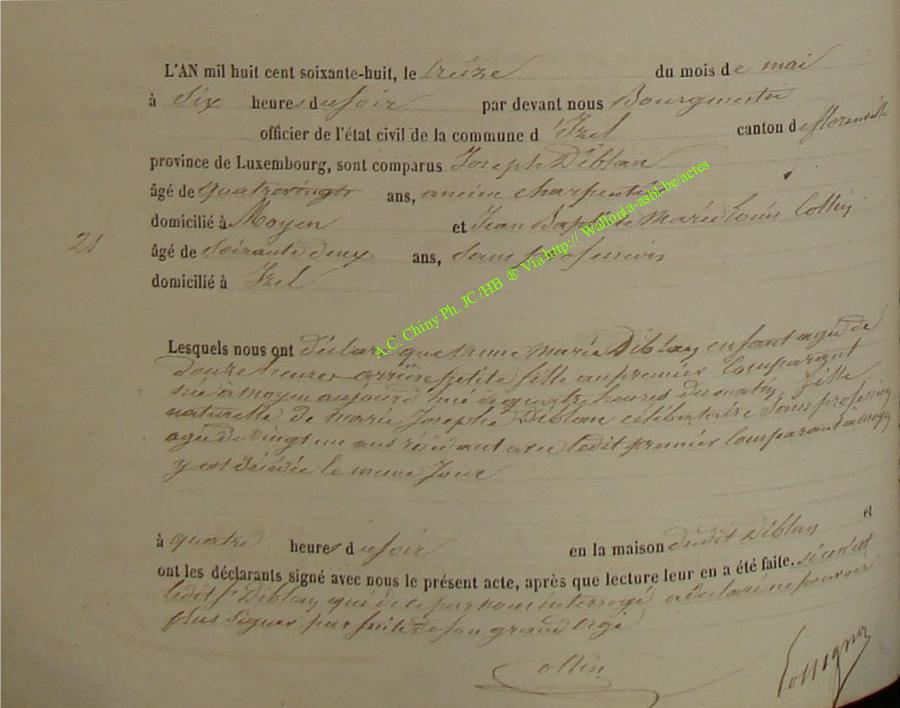 L'AN mil huit cent soixante-huit, le treize du mois de mai
à Six heures du soir par devant nous Bourgmestre
officier de l'état civil de la commune d'Izel canton de florenville
province de Luxembourg, sont comparus Joseph Diblan
âgé de quatrevingts ans, ancien charpentier
domicilié à Moyen et Jean Baptiste Marie Louis Collin
21
âgé de Soixante deux ans, Sans profession
domicilié à Izel
A.C. Chiny Ph. JC /HB ® Via http:// Wallonia-asbl.be/actes
Lesquels nous ont déclaré que Marie Diblan enfant agée de
douze heures arrière petite fille au premier Comparant
née à moyen aujourd à quatre heures du matin, fille
naturelle de marie Joseph Diblan célibataire Sans profession
agée de vingt un ans résidant avec ledit premier Comparant à moyen
y est décédée le meme Jour
à quatre heures du soir en la maison dudit Diblan et
ont les déclarants signé avec nous le présent acte, après que lecture leur en a été faite. si ce n'est
ledit Sr Diblan qui de ce par nous interrogé a déclaré ne pouvoir
plus Signer par suite de son grand age
Collin